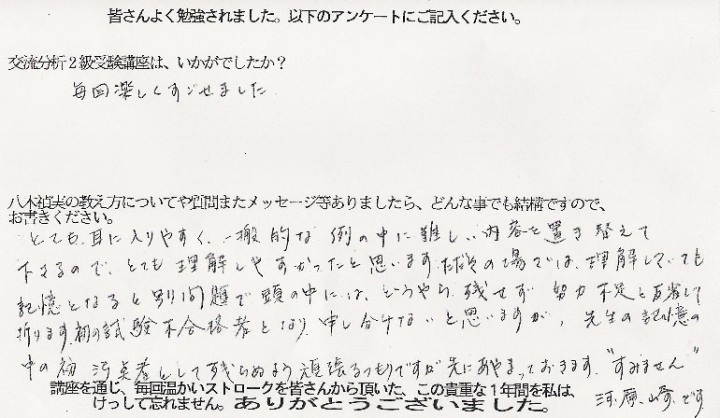 皆さんよく勉強されました。以下のアンケートにご記入ください。
交流分析2級受験講座は、いかがでしたか？
毎回楽しくすごせました
八木禎実の教え方についてや質問またメッセージ等ありましたら、どんな事でも結構ですので、
お書きください。
とても、耳に入りやすく、一般的な例の中に難しい内容を置き替えて
下さるので、とても理解しやすかったと思います。ただその場では、理解していても
記憶となると別問題で頭の中には、どうやら残せず 努力不足と反省して
折ります。初の試験不合格者となり、申し分けないと思いますが、先生の記憶の
中の初 汚点者として残らぬよう頑張るつもりですが先にあやまっておきます。"すみません"
講座を通じ、毎回温かいストロークを皆さんから頂いた、この貴重な1年間を私は、
けっして忘れません。ありがとうございました。
です